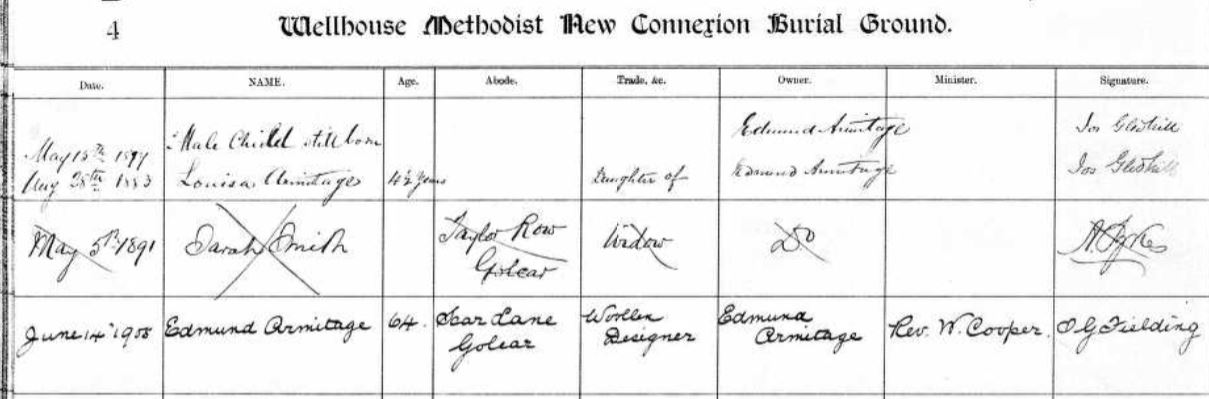 4
Wellhouse Methodist New Connexion Burial Ground.
Date. NAME. Age. Abode. Trade, &c. Owner. Minister. Signature.
May 15th Male Child still born Edmund Armitage Jos Gledhill
Aug 28th 1883 Louisa Armitage 4½ years Daughter of Edmund Armitage Jos Gledhill
May 5th 1891 Sarah Smith Taylor Row Widow Do A. Sykes
Golcar
June 14th Edmund Armitage 64. Scar Lane Woollen Edmund Rev. W. Cooper. O G Fielding
Golcar Designer Armitage